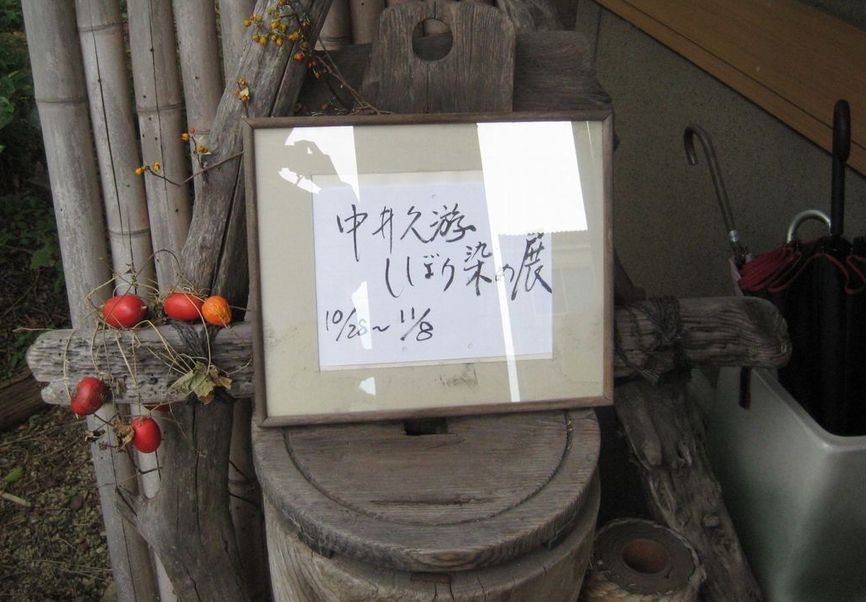 中井久游
しぼり染め展
10/28〜11/8